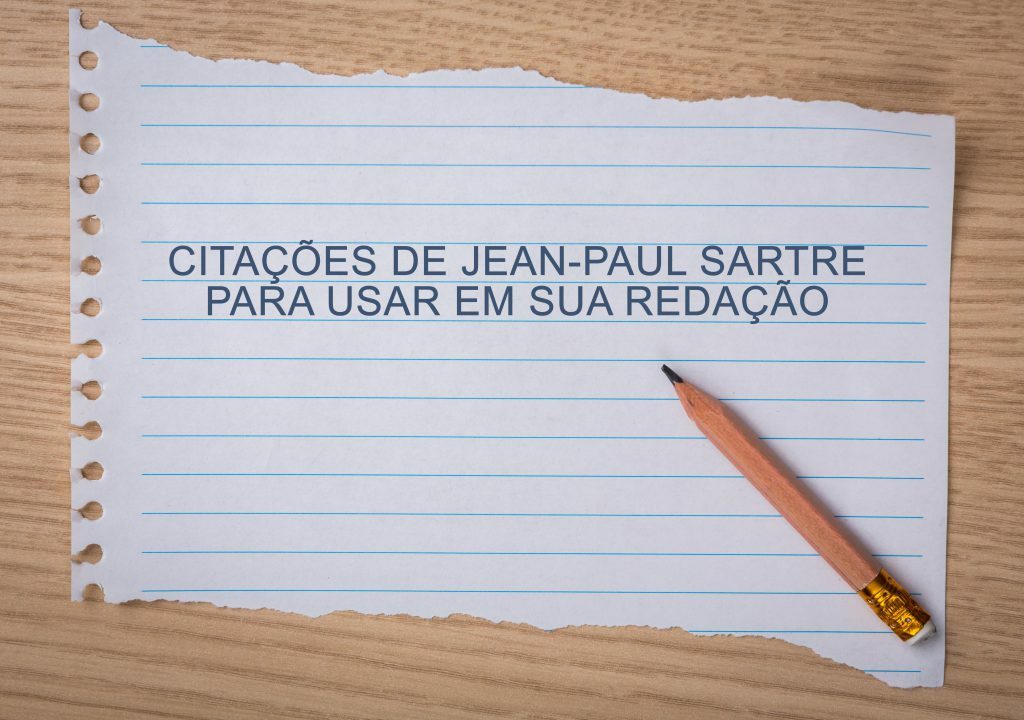 CITAÇÕES DE JEAN-PAUL SARTRE
PARA USAR EM SUA REDAÇÃO